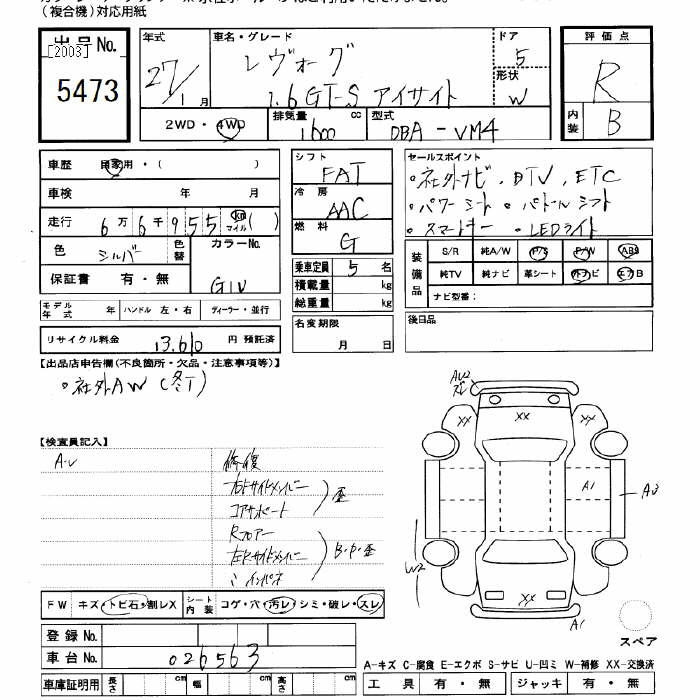 (複合機)対応用紙
出品No.
[2003]
5473
年式
27/1月
車名・グレード
レヴォーグ
1.6 GT-S アイサイト
ドア
5
形状
W
評価点
R
内装
B
2WD・4WD
排気量
1600 cc
型式
DBA-VM4
車歴 自家用・( )
車検 年 月
走行 6万6千955 km マイル ( )
色 シルバー 色替 カラーNo. G1U
保証書 有・無
シフト
FAT
冷房
AAC
燃料
G
乗車定員 5 名
積載量 kg
総重量 kg
セールスポイント
・社外ナビ, DTV, ETC
・パワーシート ・パドルシフト
・スマートキー ・LEDライト
装備品
S/R 純A/W P/S P/W ABS
純TV 純ナビ 革シート 外ナビ エアB
ナビ型番:
モデル年式 年 ハンドル 左・右 ディーラー・並行
リサイクル料金 13,610 円 預託済
名変期限
月 日
後日品
【出品店申告欄(不良箇所・欠品・注意事項等)】
・社外AW (冬T)
【検査員記入】
A-U
修復
右Fサイドメンバー
コアサポート
歪
Rフロアー
左Rサイドメンバー
〃 インパネ
B・P・歪
AU2
XX
XX
XX
A1
A3
W2
XX
A1
スペア
FW キズ・トビ石・割レX
シート内装 コゲ・穴・汚レ・シミ・破レ・スレ
登録No.
車台No. 026563
車庫証明用 長さ cm 幅 cm 高さ cm
A-キズ C-腐食 E-エクボ S-サビ U-凹ミ W-補修 XX-交換済
工具 有・無 ジャッキ 有・無